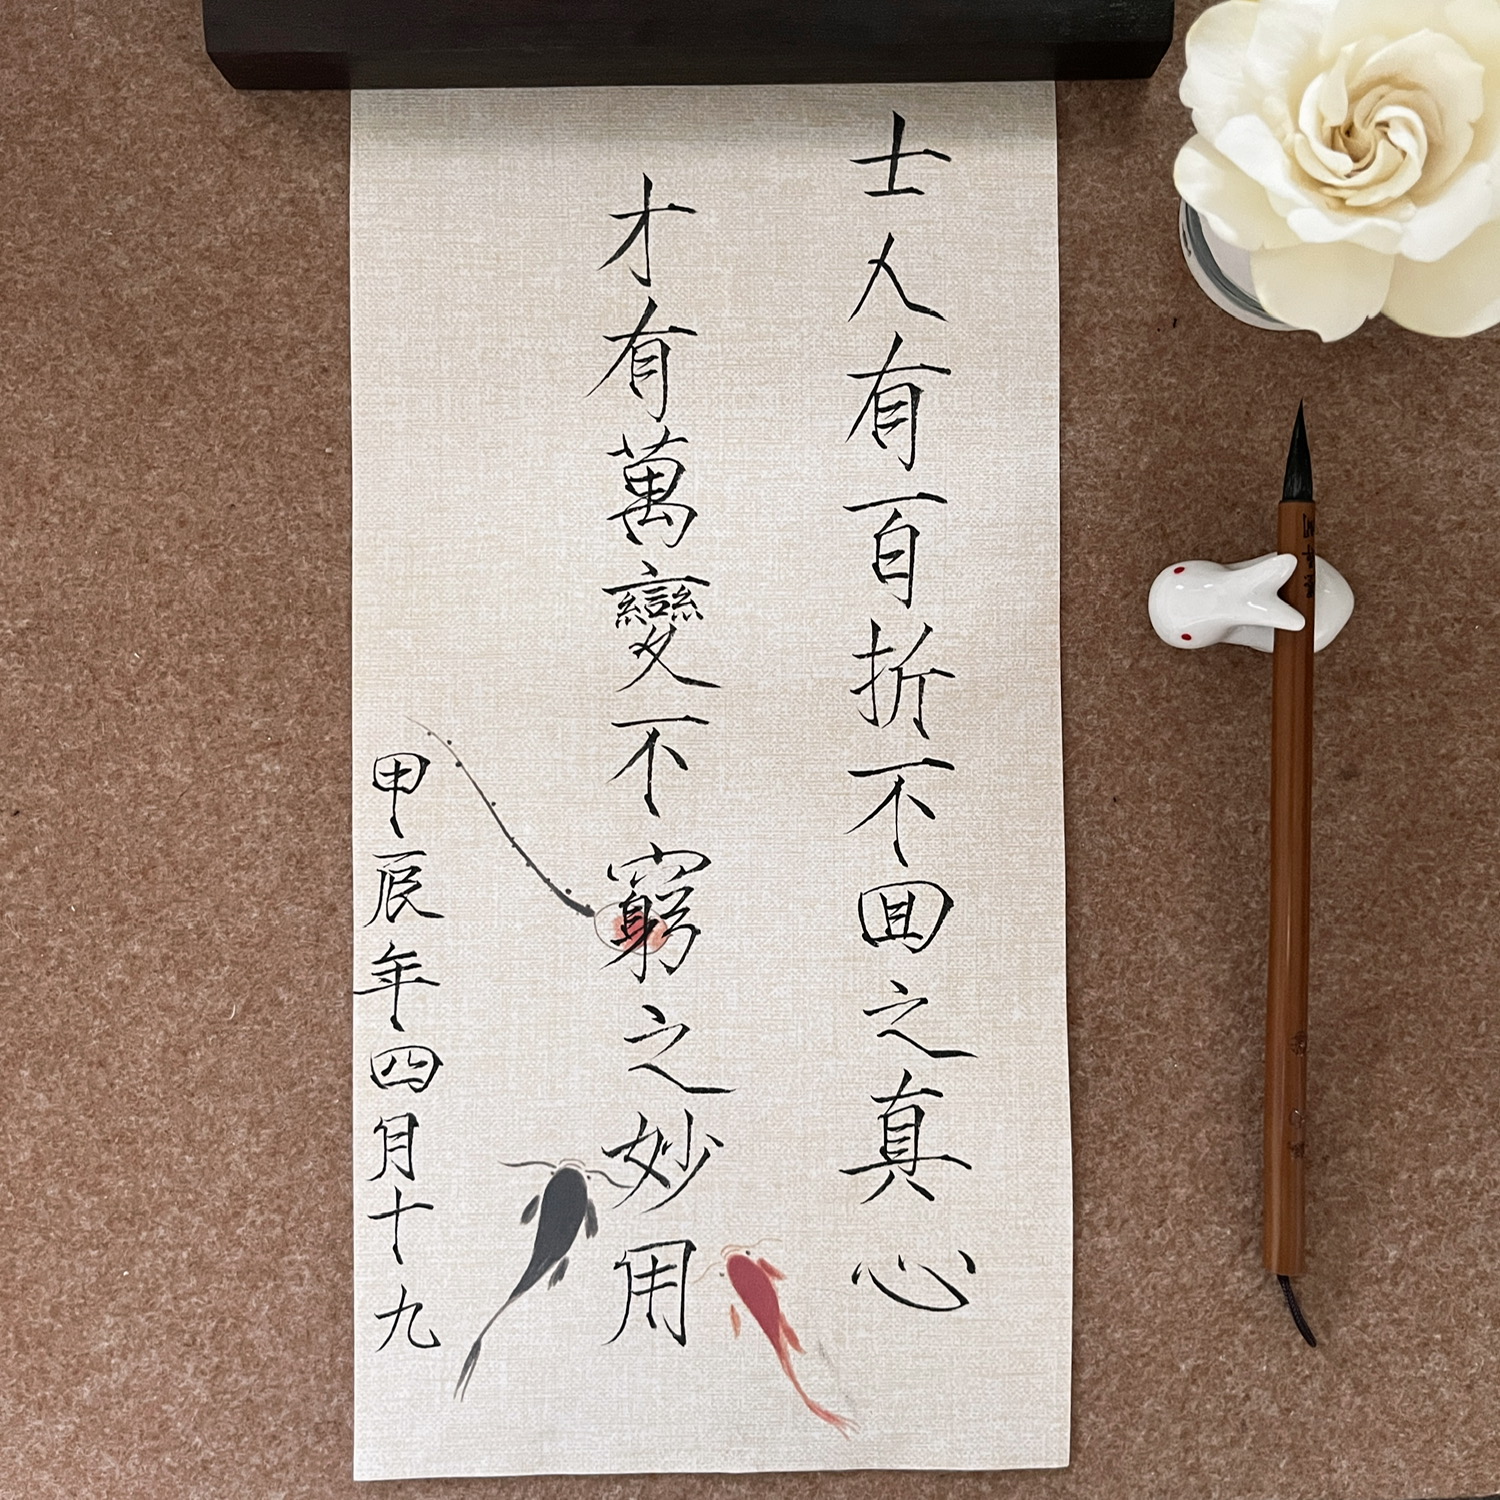 士人有百折不囬之真心
才有萬變不窮之妙用
甲辰年四月十九